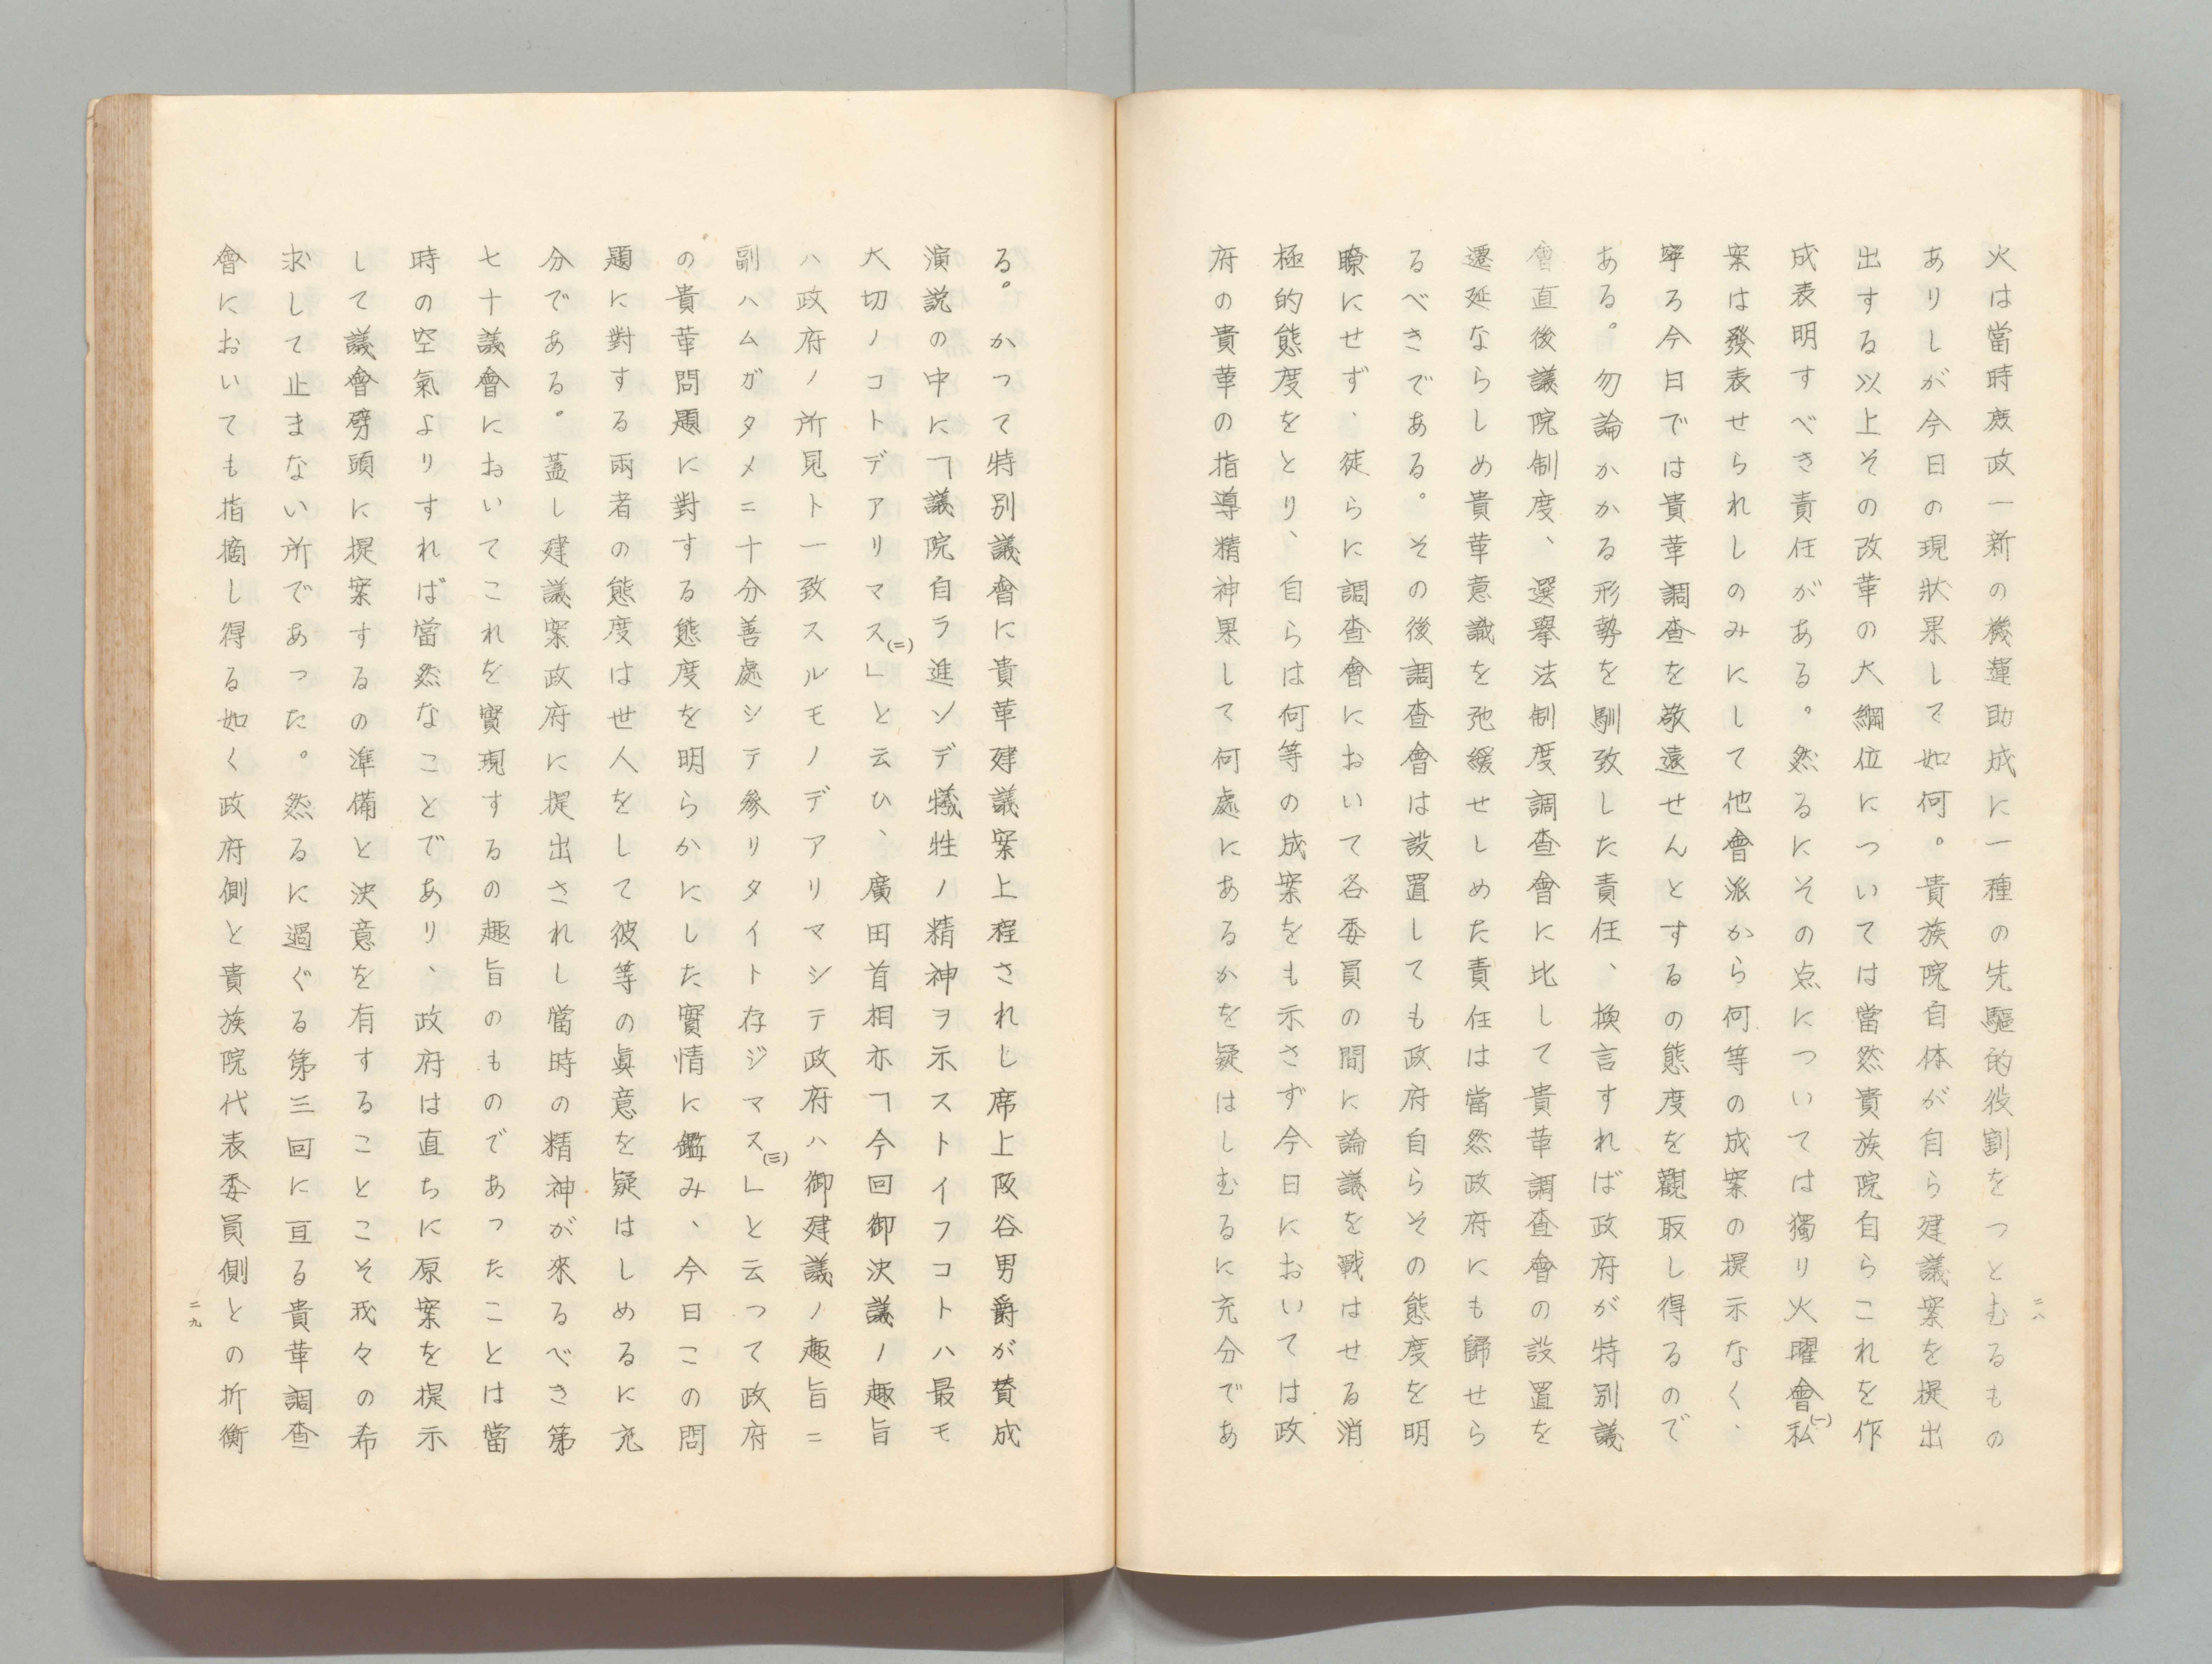 火は當時庶政一新の機運助成に一種の先驅的役割をつとむるもの
ありしが今日の現狀果して如何。貴族院自体が自ら建議案を提出
出する以上その改革の大綱位については當然貴族院自らこれを作
成表明すべき責任がある。然るにその点については獨り火曜會私(一)
案は發表せられしのみにして他會派から何等の成案の提示なく、
寧ろ今日では貴革調査を敬遠せんとするの態度を觀取し得るので
ある。勿論かかる形勢を馴致した責任、換言すれば政府が特別議
會直後議院制度、選擧法制度調査會に比して貴革調査會の設置を
遷延ならしめ貴革意識を弛緩せしめた責任は當然政府にも歸せら
るべきである。その後調査會は設置しても政府自らその態度を明
瞭にせず、徒らに調査會において各委員の間に論議を戰はせる消
極的態度をとり、自らは何等の成案をも示さず今日においては政
府の貴革の指導精神果して何處にあるかを疑はしむるに充分であ
二八
る。かつて特別議會に貴革建議案上程されし席上阪谷男爵が賛成
演説の中に「議院自ラ進ンデ犠牲ノ精神ヲ示ストイフコトハ最モ
大切ノコトデアリマス(二)」と云ひ、廣田首相亦「今回御決議ノ趣旨
ハ政府ノ所見ト一致スルモノデアリマシテ政府ハ御建議ノ趣旨ニ
副ハムガタメニ十分善處シテ參リタイト存ジマス(三)」と云つて政府
の貴革問題に對する態度を明らかにした實情に鑑み、今日この問
題に對する兩者の態度は世人をして彼等の眞意を疑はしめるに充
分である。蓋し建議案政府に提出されし當時の精神が來るべき第
七十議會においてこれを實現するの趣旨のものであつたことは當
時の空氣よりすれば當然なことであり、政府は直ちに原案を提示
して議會劈頭に提案するの準備と決意を有することこそ我々の希
求して止まない所であつた。然るに過ぐる第三回に亘る貴革調査
會においても指摘し得る如く政府側と貴族院代表委員側との折衡
二九